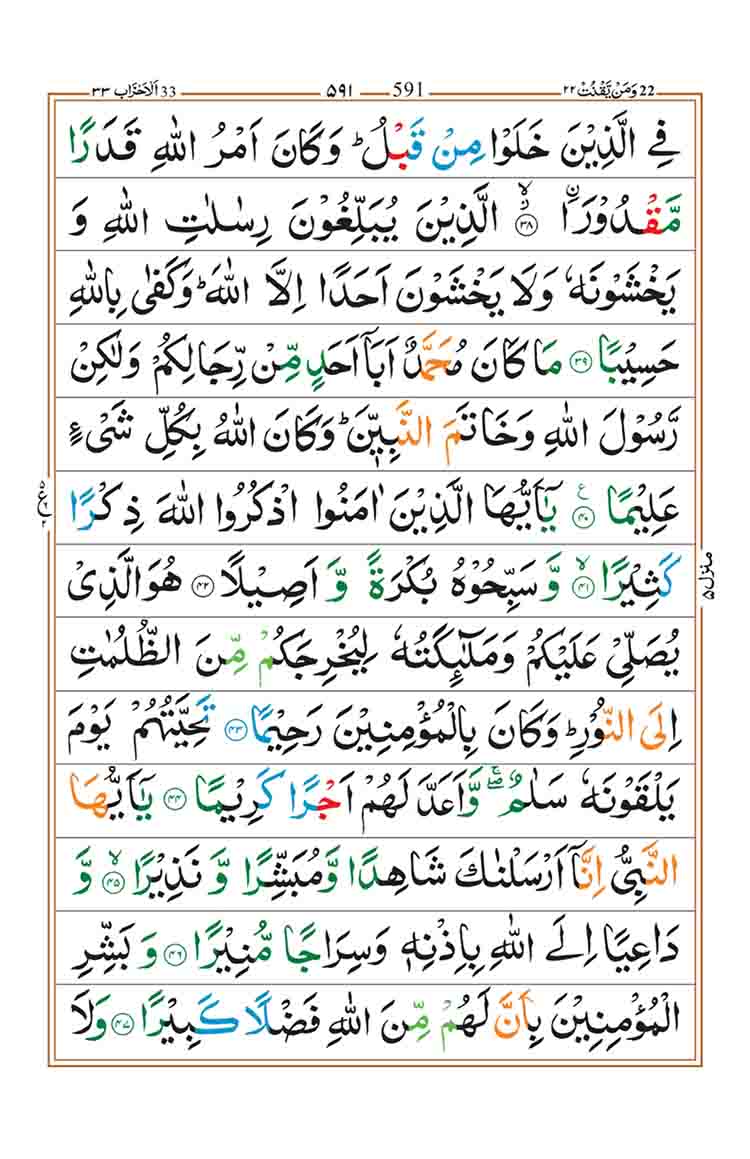 33 اَلْاَحْزَاب ٣٣ 591 ۵۹۱ 22 وَمَنْ يَّقْنُتْ ٢٢
فِى الَّذِيْنَ خَلَوْا مِنْ قَبْلُ ؕ وَكَانَ اَمْرُ اللّٰهِ قَدَرًا
مَّقْدُوْرَا ۨ ۙ ﴿۳۸﴾ الَّذِيْنَ يُبَلِّغُوْنَ رِسٰلٰتِ اللّٰهِ وَ
يَخْشَوْنَهٗ وَلَا يَخْشَوْنَ اَحَدًا اِلَّا اللّٰهَ ؕ وَكَفٰى بِاللّٰهِ
حَسِيْبًا ﴿۳۹﴾ مَا كَانَ مُحَمَّدٌ اَبَآ اَحَدٍ مِّنْ رِّجَالِكُمْ وَلٰكِنْ
رَّسُوْلَ اللّٰهِ وَخَاتَمَ النَّبِيّٖنَ ؕ وَكَانَ اللّٰهُ بِكُلِّ شَىْءٍ
عَلِيْمًا ﴿۴۰﴾ ع يٰۤاَيُّهَا الَّذِيْنَ اٰمَنُوا اذْكُرُوا اللّٰهَ ذِكْرًا
كَثِيْرًا ۙ ﴿۴۱﴾ وَّ سَبِّحُوْهُ بُكْرَةً وَّ اَصِيْلًا ﴿۴۲﴾ هُوَ الَّذِىْ
يُصَلِّىْ عَلَيْكُمْ وَمَلٰٓئِكَتُهٗ لِيُخْرِجَكُمْ مِّنَ الظُّلُمٰتِ
اِلَى النُّوْرِ ؕ وَكَانَ بِالْمُؤْمِنِيْنَ رَحِيْمًا ﴿۴۳﴾ تَحِيَّتُهُمْ يَوْمَ
يَلْقَوْنَهٗ سَلٰمٌ ۖۚ وَّاَعَدَّ لَهُمْ اَجْرًا كَرِيْمًا ﴿۴۴﴾ يٰۤاَيُّهَا
النَّبِىُّ اِنَّاۤ اَرْسَلْنٰكَ شَاهِدًا وَّمُبَشِّرًا وَّ نَذِيْرًا ۙ ﴿۴۵﴾ وَّ
دَاعِيًا اِلَى اللّٰهِ بِاِذْنِهٖ وَسِرَاجًا مُّنِيْرًا ﴿۴۶﴾ وَ بَشِّرِ
الْمُؤْمِنِيْنَ بِاَنَّ لَهُمْ مِّنَ اللّٰهِ فَضْلًا كَبِيْرًا ﴿۴۷﴾ وَلَا
منزل ۵